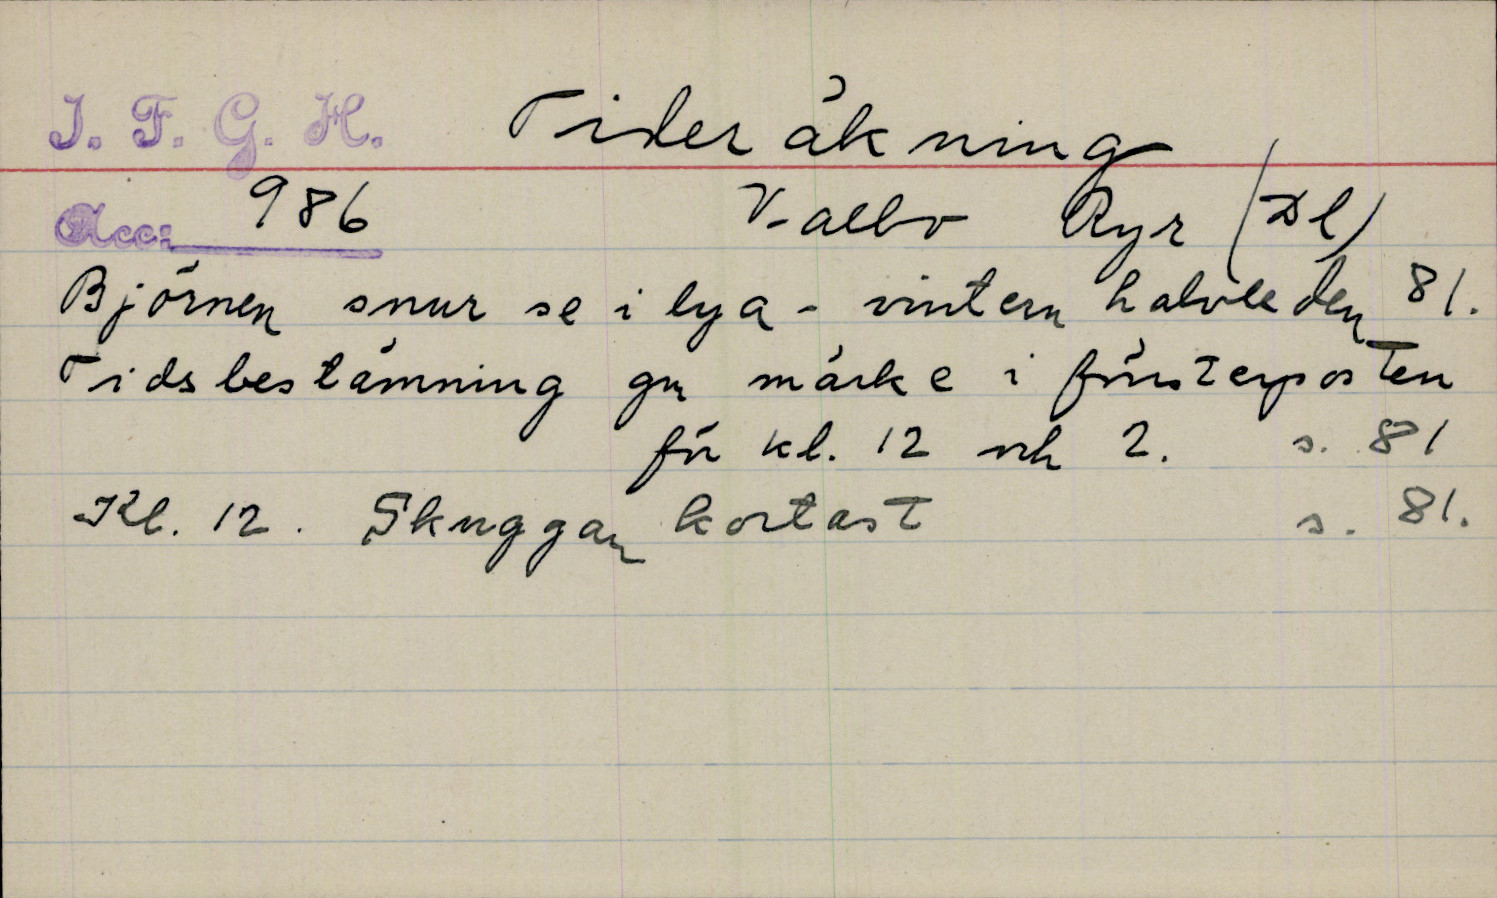 I. F. G. H. Tideräkning
Acc: 986 Valbo Ryr (Dl)
Björnen snur se i lya - vintern halvleden 81.
Tidsbestämning gn märke i fönsterposten
för kl. 12 och 2. s. 81
Kl. 12. Skuggan kortast s. 81.